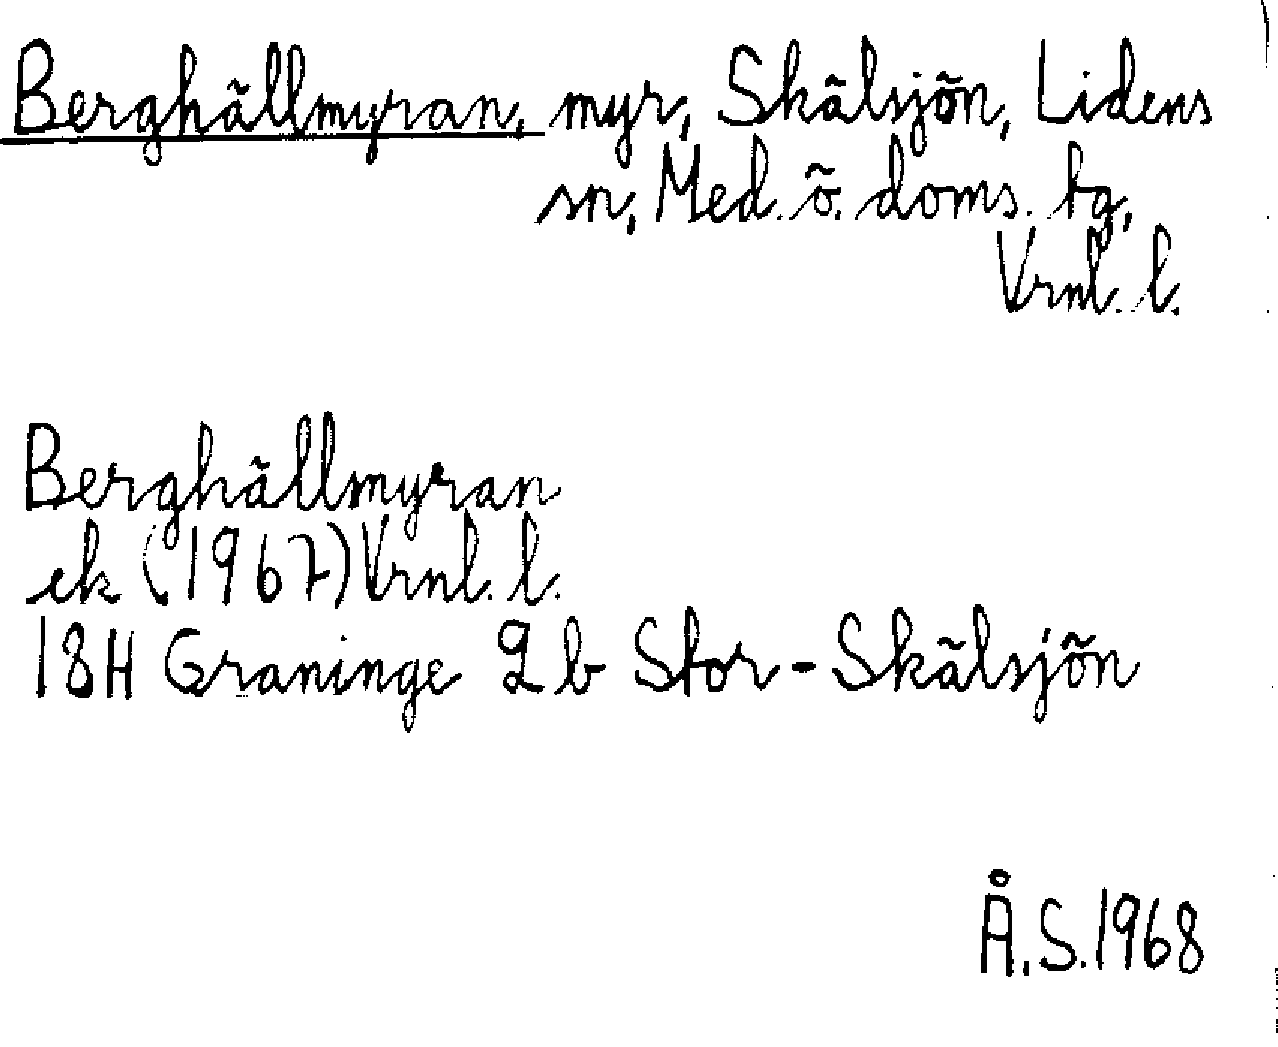 Berghällmyran, myr, Skälsjön, Lidens
sn, Med. ö. doms. tg,
Vrnl. l.
Berghällmyran
ek (1967) Vrnl. l.
18H Graninge 2b Stor-Skälsjön
Å.S. 1968